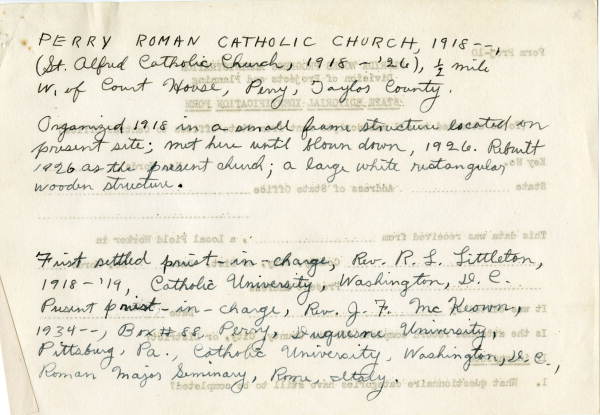 PERRY ROMAN CATHOLIC CHURCH, 1918 --,
(St. Alfred Catholic Church, 1918 - '26), ½ mile
W. of Court House, Perry, Taylor County.
Organized 1918 in a small frame structure located on
present site; met here until blown down, 1926. Rebuilt
1926 as the present church; a large white rectangular
wooden structure.
First settled priest-in-charge, Rev. R. L. Littleton,
1918-'19, Catholic University, Washington, D.C.
Present priest-in-charge, Rev. J. F. McKeown,
1934--, Box #88, Perry, Duquesne University,
Pittsburg, Pa., Catholic University, Washington, D.C.,
Roman Major Seminary, Rome, Italy.